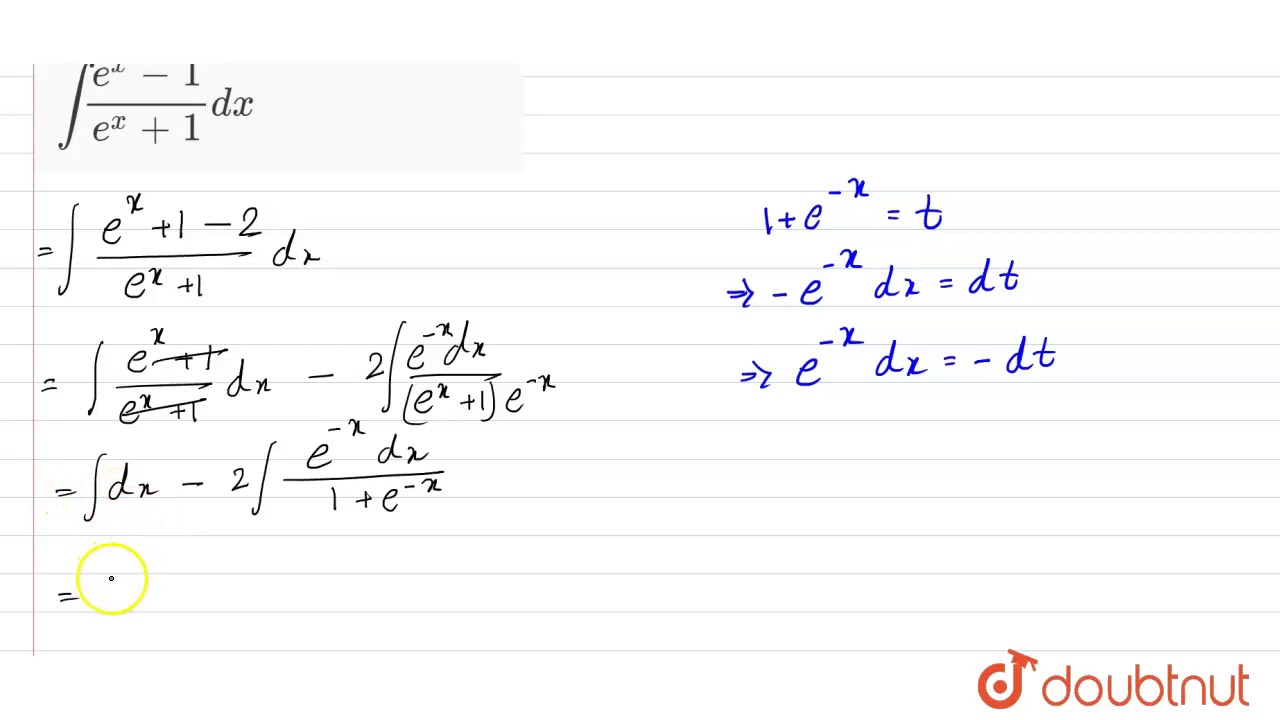 ∫ (e^x − 1)/(e^x + 1) dx
= ∫ (e^x + 1 − 2)/(e^x + 1) dx
= ∫ (e^x + 1)/(e^x + 1) dx − 2 ∫ (e^-x dx)/((e^x + 1) e^-x)
= ∫ dx − 2 ∫ (e^-x dx)/(1 + e^-x)
=
1 + e^-x = t
⇒ − e^-x dx = dt
⇒ e^-x dx = − dt
doubtnut